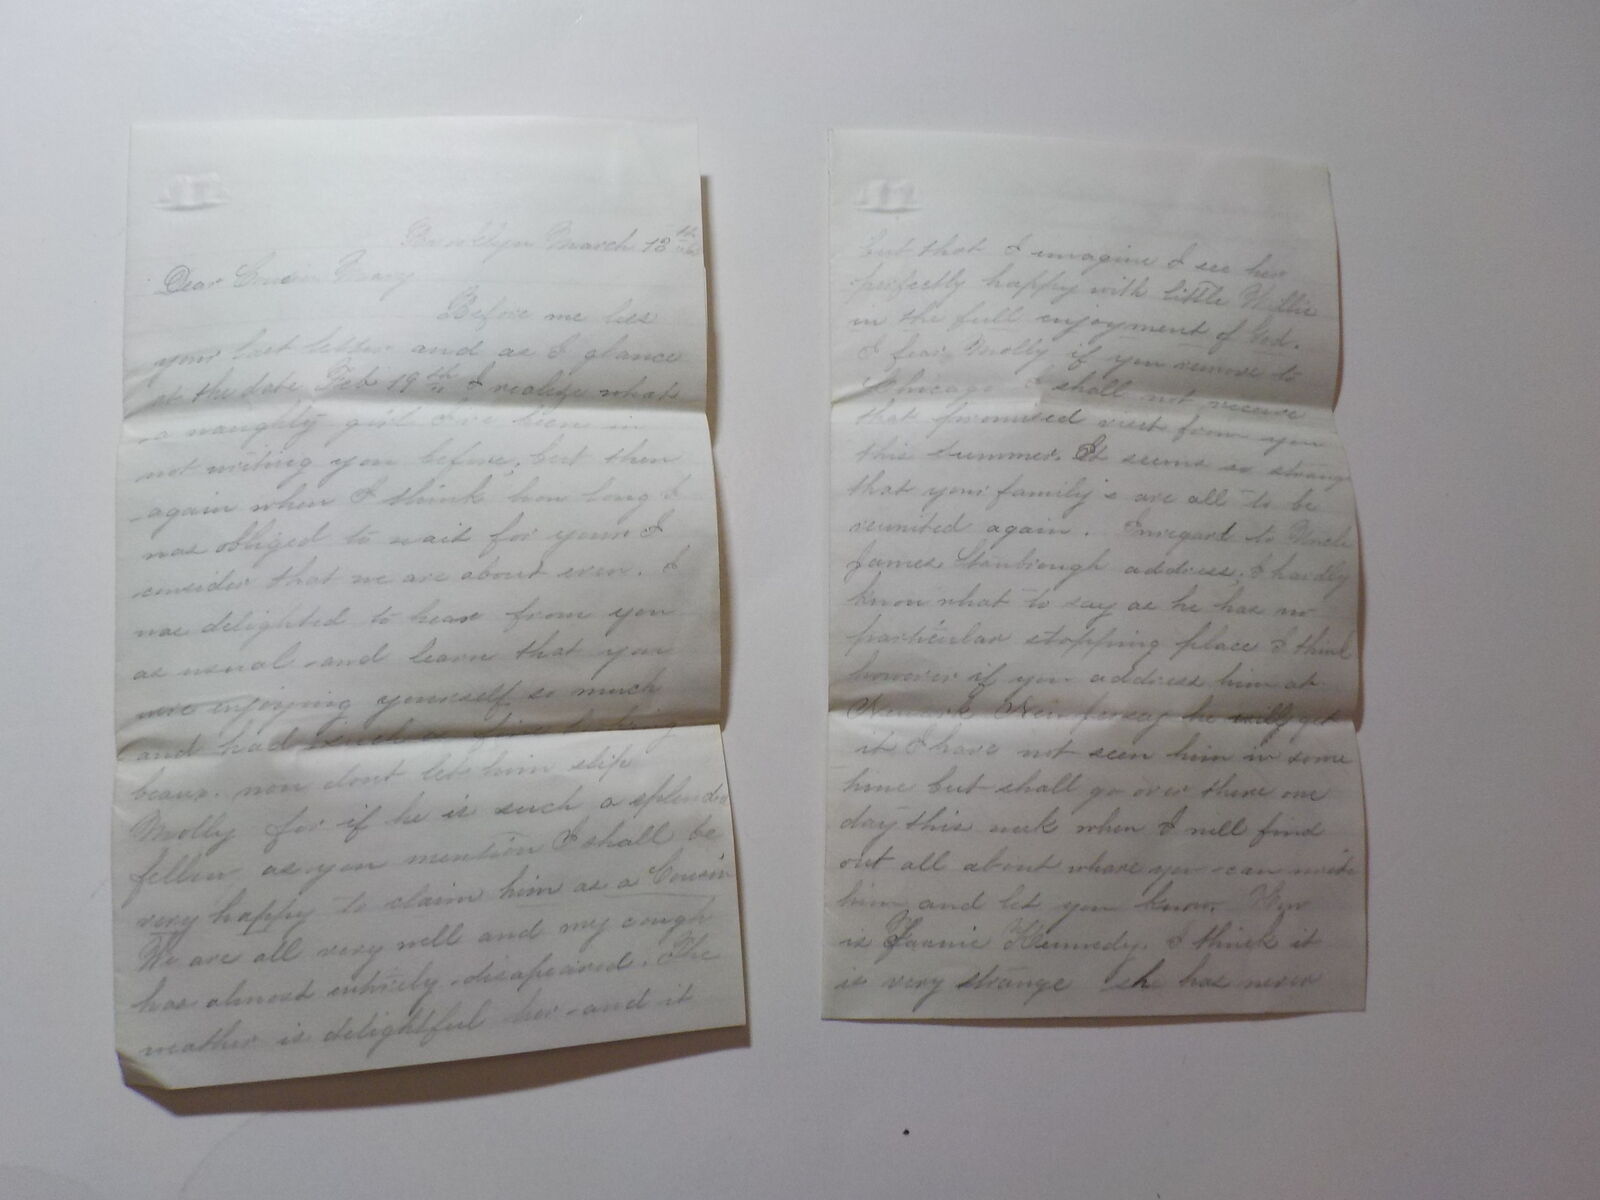 Brooklyn March 13th
Dear Cousin Mary
Before me lies
your last letter and as I glance
at the date Feb 19th I realize what
a naughty girl I've been in
not writing you before, but then
again when I think how long I
was obliged to wait for yours I
consider that we are about even. I
was delighted to hear from you
as usual and learn that you
were enjoying yourself so much
and had such a fine looking
beaux. now dont let him slip
Molly for if he is such a splendid
fellow as you mention I shall be
very happy to claim him as a Cousin
We are all very well and my cough
has almost entirely disapeared. The
weather is delightful her and it
but that I imagine I see her
perfectly happy with little Willie
in the full enjoyment of God.
I fear Molly if you remove to
Chicago I shall not receive
that promised visit from you
this summer. It seems so strange
that your family's are all to be
reunited again. Inregard to Uncle
James address, I hardly
know what to say as he has no
particular stopping place I think
however if you address him at
Newark New Jersey he will get
it I have not seen him in some
time but shall go over there one
day this week when I will find
out all about where you can write
him and let you know. How
is Fannie Kennedy. I think it
is very strange she has never